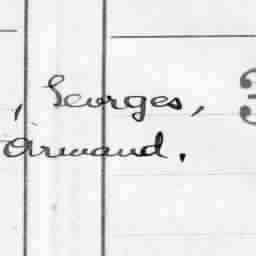 , Georges,
Armand.